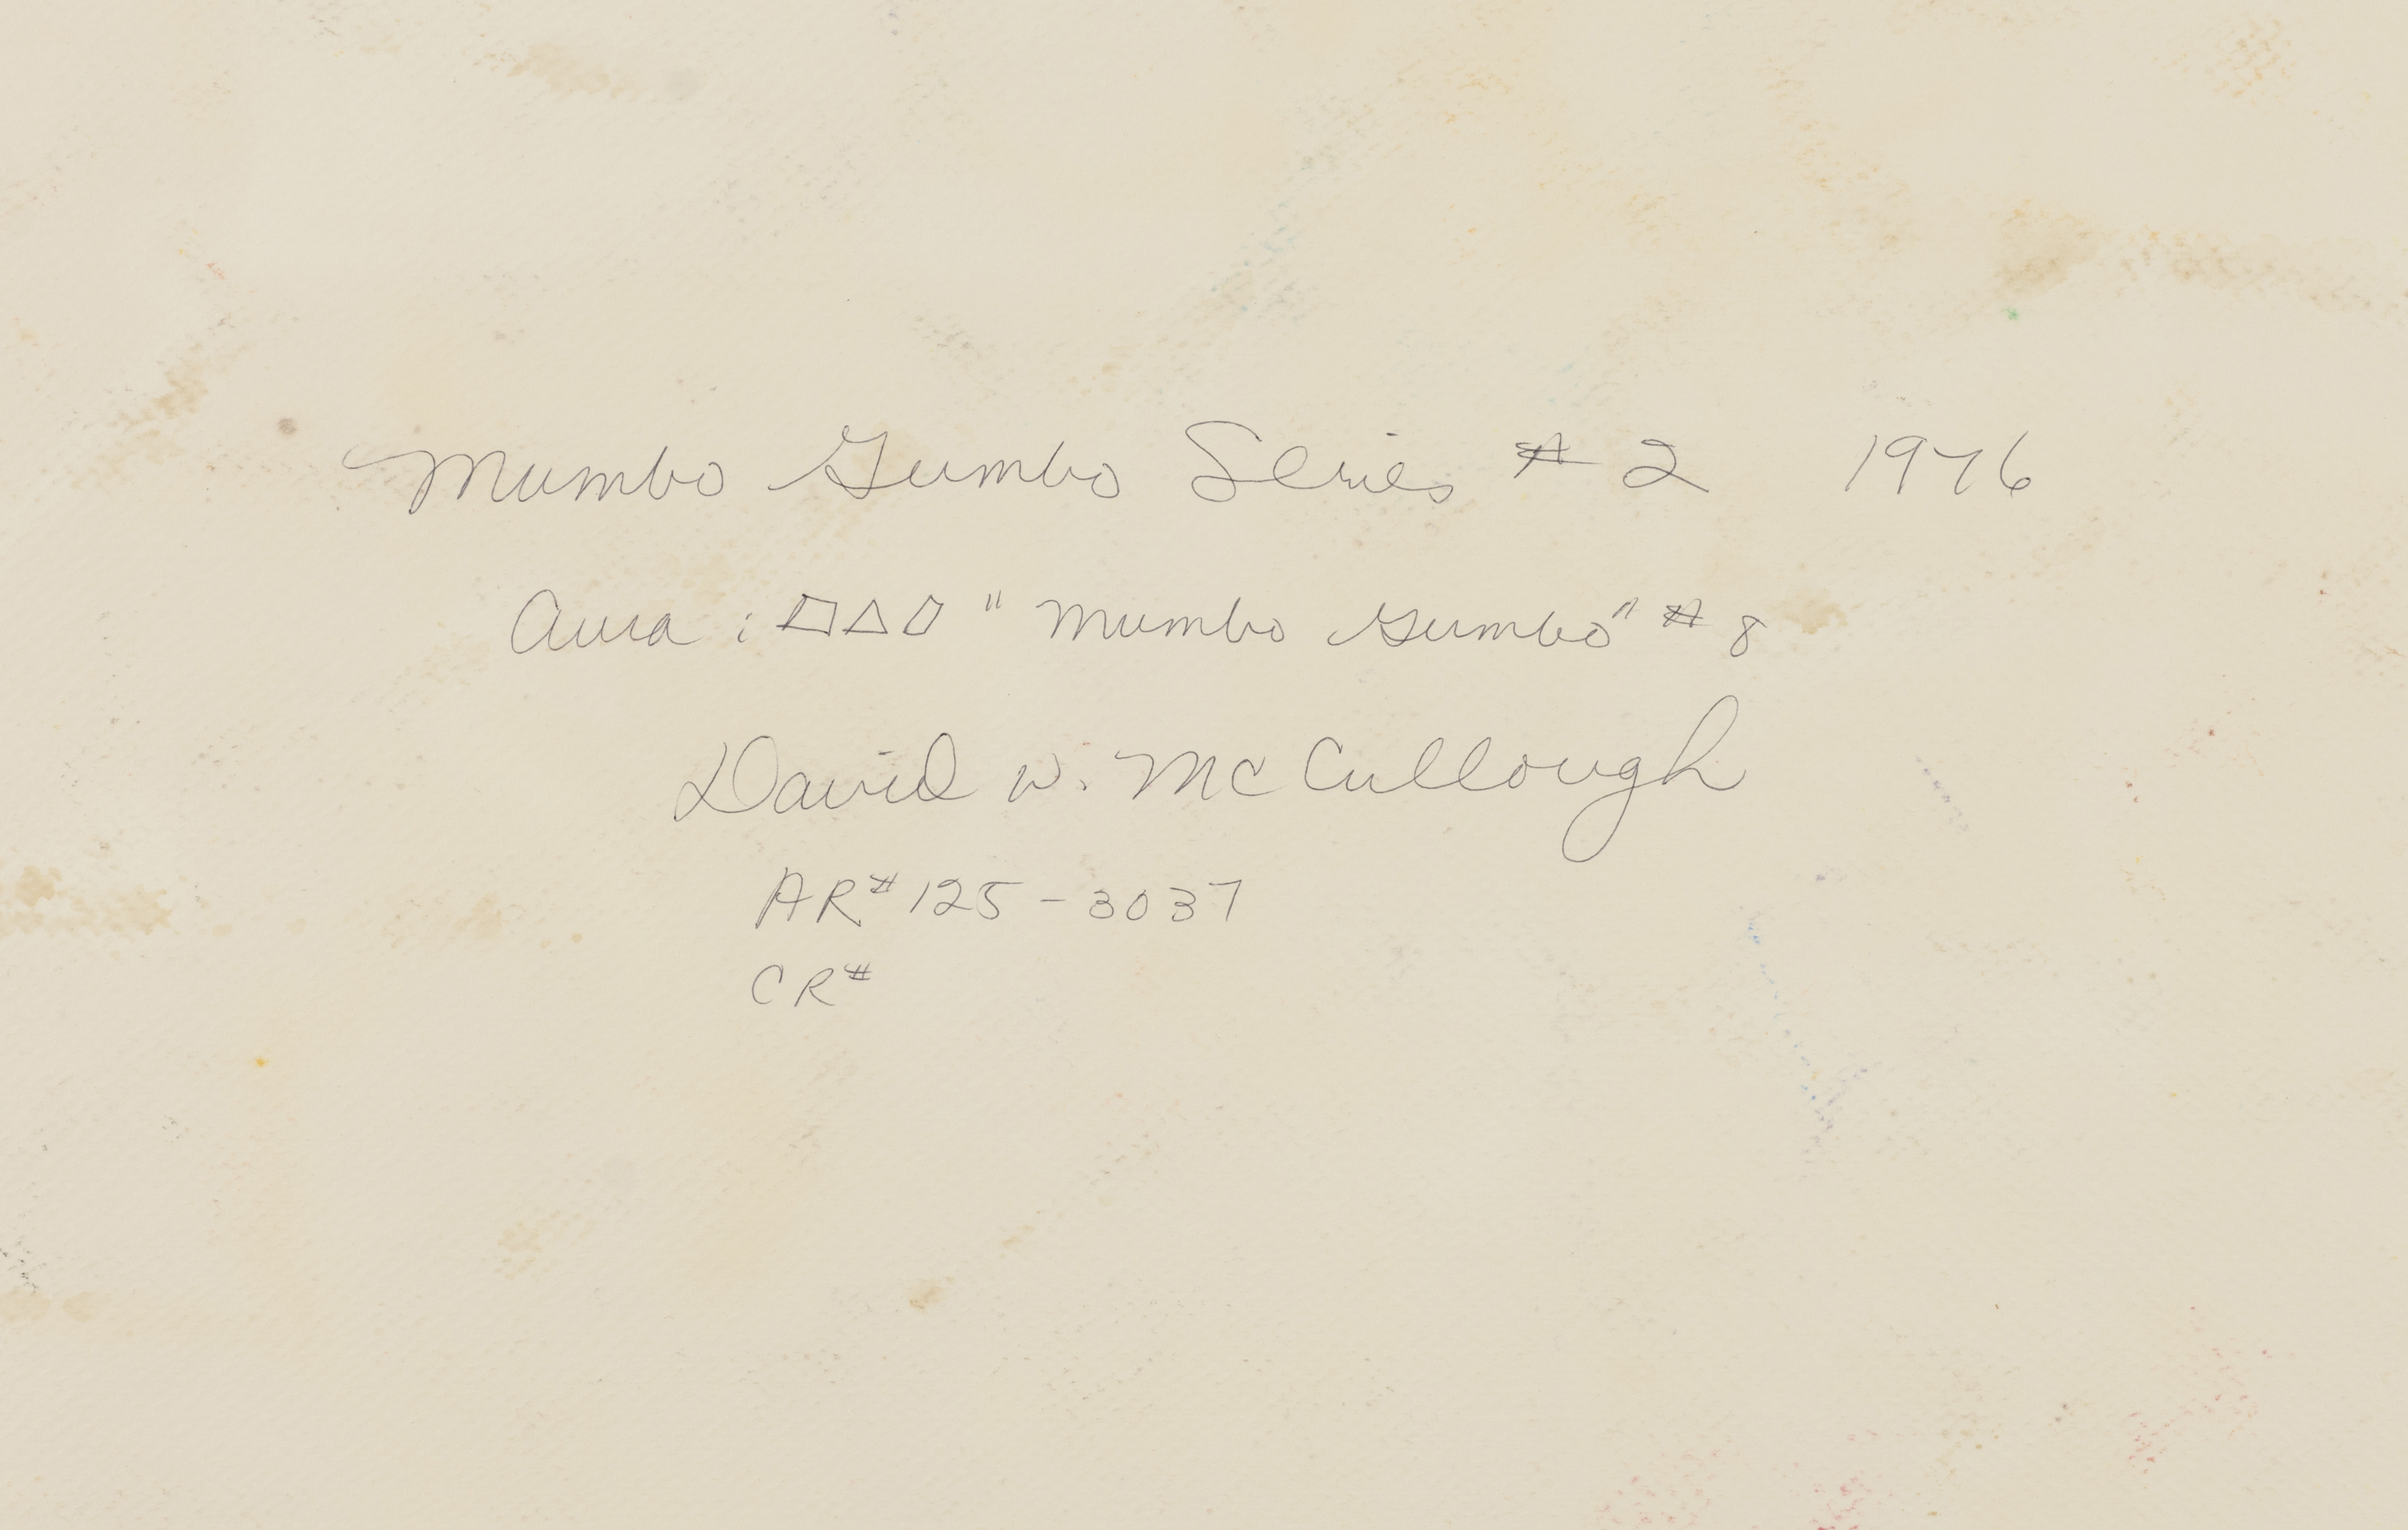 Mumbo Gumbo Series # 2 1976
Aura : ▱△▱ "Mumbo Gumbo" # 8
David W. McCullough
AR# 125-3037
CR#